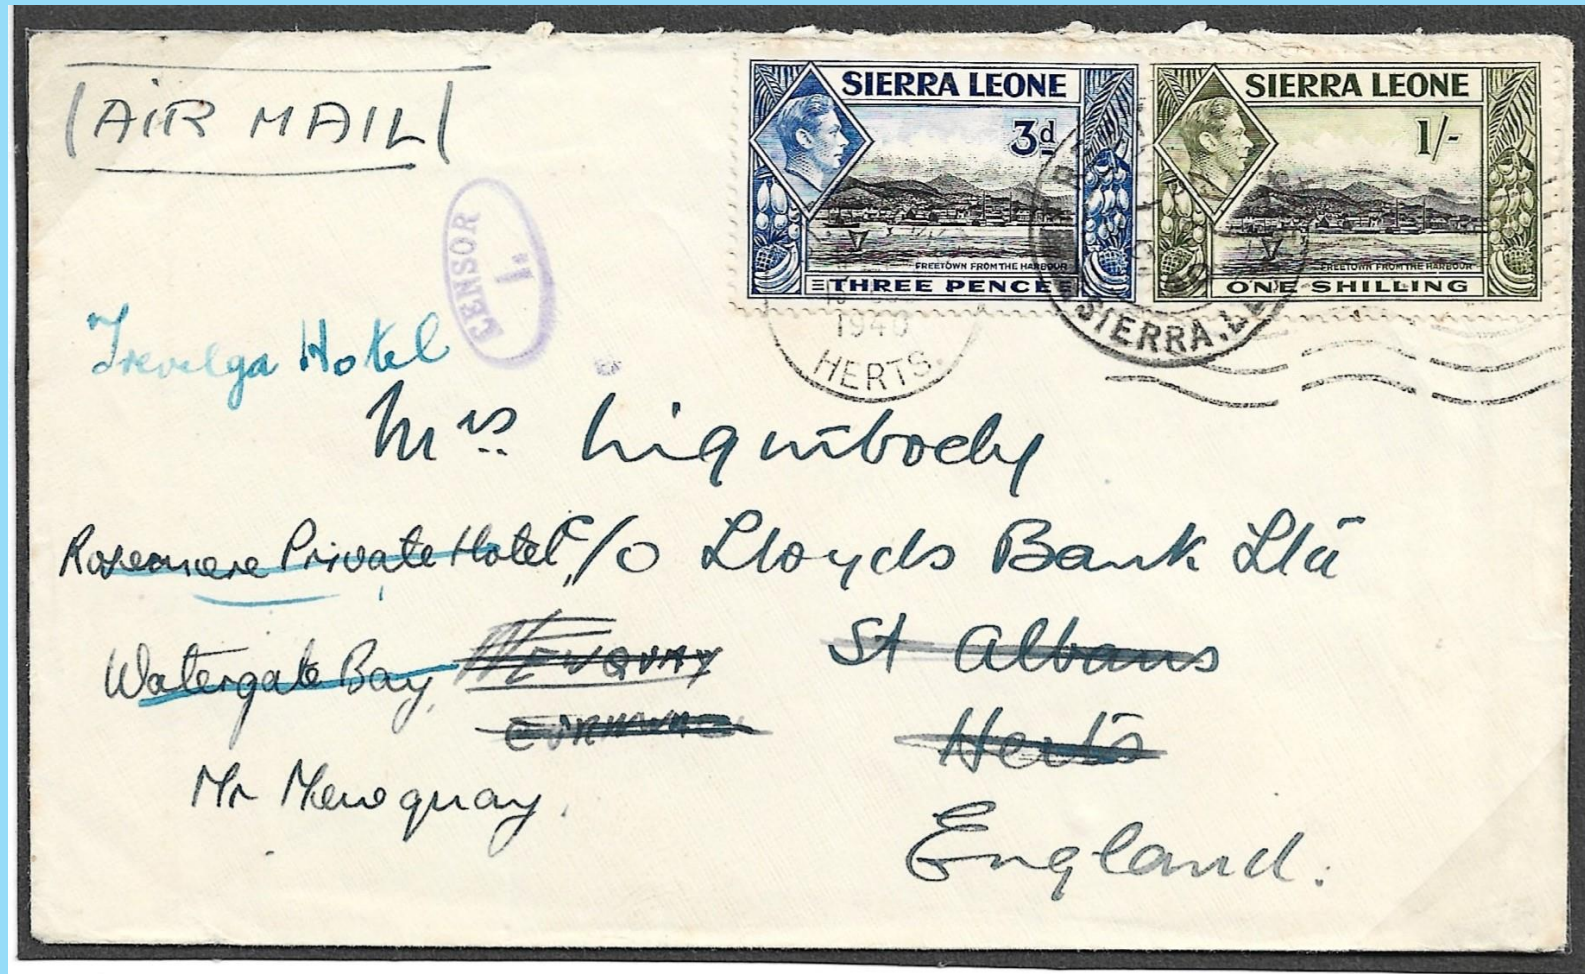 (AIR MAIL)
SIERRA LEONE
3d
FREETOWN FROM THE HARBOUR
THREE PENCE
SIERRA LEONE
1/-
FREETOWN FROM THE HARBOUR
ONE SHILLING
CENSOR
1.
1940
HERTS.
SIERRA.LE
Trevelga Hotel
Mrs Liquibody
Rosemere Private Hotel, c/o Lloyds Bank Ltd
Watergate Bay, NEWQUAY St Albans
CORNWALL Herts
Nr Newquay. England.